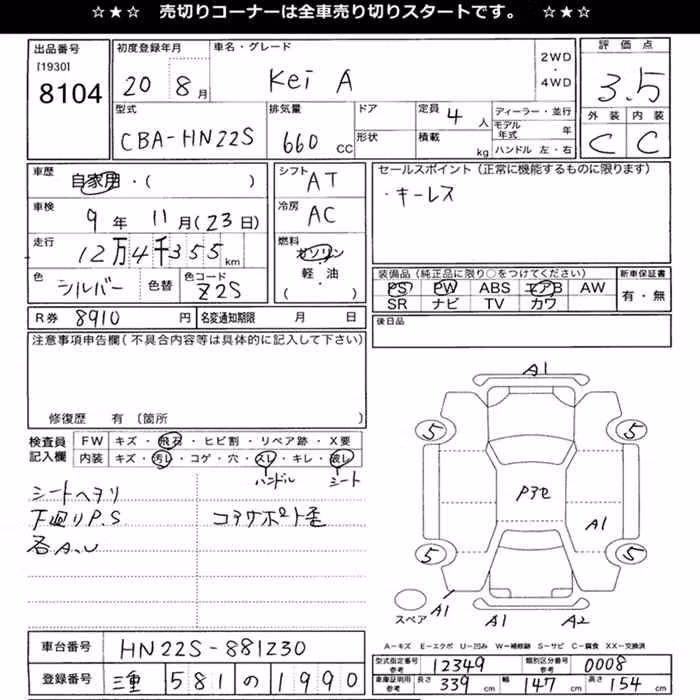 ☆★☆ 売切りコーナーは全車売り切りスタートです。 ☆★☆
出品番号
[1930]
8104
初度登録年月
20 8月
車名・グレード
Kei A
2WD
・
4WD
評価点
3.5
外装 内装
C C
型式
CBA-HN22S
排気量
660 CC
ドア
形状
定員 4 人
積載 kg
ディーラー・並行
モデル年式 年
ハンドル 左・右
車歴
自家用・( )
車検
9年 11月(23日)
走行
12万4千355km
色
シルバー
色替
色コード
Z2S
シフト
AT
冷房
AC
燃料
ガソリン
軽・油
( )
セールスポイント(正常に機能するものに限ります)
・キーレス
装備品(純正品に限り○をつけてください)
PS PW ABS エアB AW
SR ナビ TV カワ
新車保証書
有・無
R券 8910 円
名変通知期限 月 日
後日品
注意事項申告欄(不具合内容等は具体的に記入して下さい)
修復歴 有 〔箇所 〕
検査員
記入欄
FW キズ・飛石・ヒビ割・リペア跡・X要
内装 キズ・汚レ・コゲ・穴・スレ・キレ・破レ
ハンドル シート
シートヘタリ
下廻りP.S
コアサポート歪
各A.U
A1
5 5
Pヌセ
A1
5 5
スペア
A1 A1 A2
A—キズ E—エクボ U—凹み W—補修跡 S—サビ C—腐食 XX—交換済
車台番号
HN22S-881230
登録番号
三重 581 の 1990
型式指定番号
参考
12349
類別区分番号
参考
0008
車庫証明用
参考
長さ 339 cm
幅 147 cm
高さ 154 cm